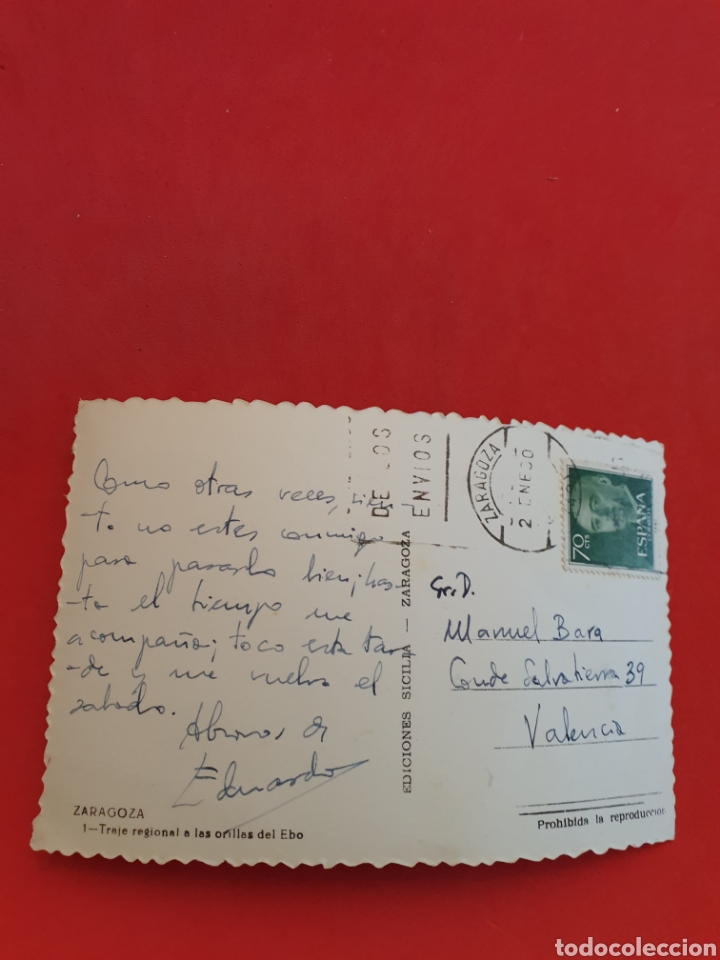 Como otras veces, sien-
to no estes conmigo
para pasarlo bien; has-
-ta el tiempo me
acompaña; toco esta tar-
-de y me vuelvo el
sabado.
Abrazos de
Eduardo
ZARAGOZA
1—Traje regional a las orillas del Ebo
EDICIONES SICILIA — ZARAGOZA
DE LOS
ENVIOS
ZARAGOZA
2 ENE 60
70
CTS
ESPAÑA
Sr. D.
Manuel Bara
Conde Salvatierra 39
Valencia
Prohibida la reproduccion
todocoleccion